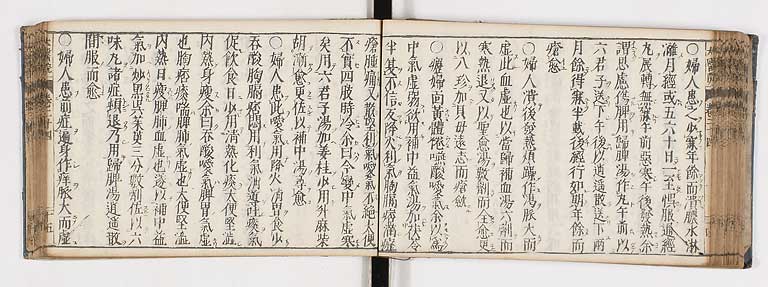 ○婦人患之少寐年餘而潰膿水淋
漓月經或五六十日一至惧服通經
丸展轉無寐午前惡寒午後發熱余
謂思慮傷脾用歸脾湯作丸午前以
六君子送下午後以逍遙散送下兩
月餘得寐半載後經行如期年餘而
瘡愈
○婦人潰後發熱煩躁作渴脈大而
虛此血虛也以當歸補血湯六劑而
寒熱退又以聖愈湯數劑而全愈更
以八珍加貝母遠志而瘡斂
婦面黃體倦嚥酸噯氣余以為
中氣虛弱欲用補中益氣湯加茯苓
半夏不信反降火利氣胸膈痞滿
瘡腫痛又散堅利氣噯氣不絕大便
不實四肢時冷余曰今變中氣虛寒
矣用六君子湯加姜桂少用升麻柴
胡漸愈更佐以補中湯尋愈
○婦人患此噯氣用降火清胃食少
吞酸胸膈痞悶用利氣消道吐痰氣
促飲食日少用清熱化痰大便堅澁
內熱身瘦余曰吞酸噯氣脾胃氣虛
也胸痞痰喘脾肺氣虛也大便堅澁
內熱日瘦脾肺血虛也遂以補中益
氣加炒黑吳茱萸三分數劑佐以六
味丸諸症頓退乃用歸脾湯逍遙散
間服而愈
○婦人患前症遍身作痒脈大而虛